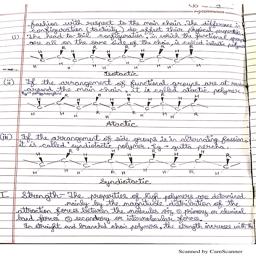 fashion with respect to the main chain. The difference in
configuration (tacticity) do affect their physical properties.
(i) The head to tail configuration, in which the functional groups
are all on the same side of the chain, is called isotactic polymer.
Isotactic
(ii) If the arrangement of functional groups are at random
around the main chain, it is called atactic polymer.
Atactic
(iii) If the arrangement of side groups is in alternating fashion,
it is called syndiotactic polymer. Eg → gutta percha.
Syndiotactic
I. Strength:- The properties of high polymers are determined
mainly by the magnitude distribution of the
attraction forces between the molecules viz, ① primary or chemical
bond forces ② secondary or intermolecular forces.
In straight and branched chain polymers, the strength increases with the
Scanned by CamScanner